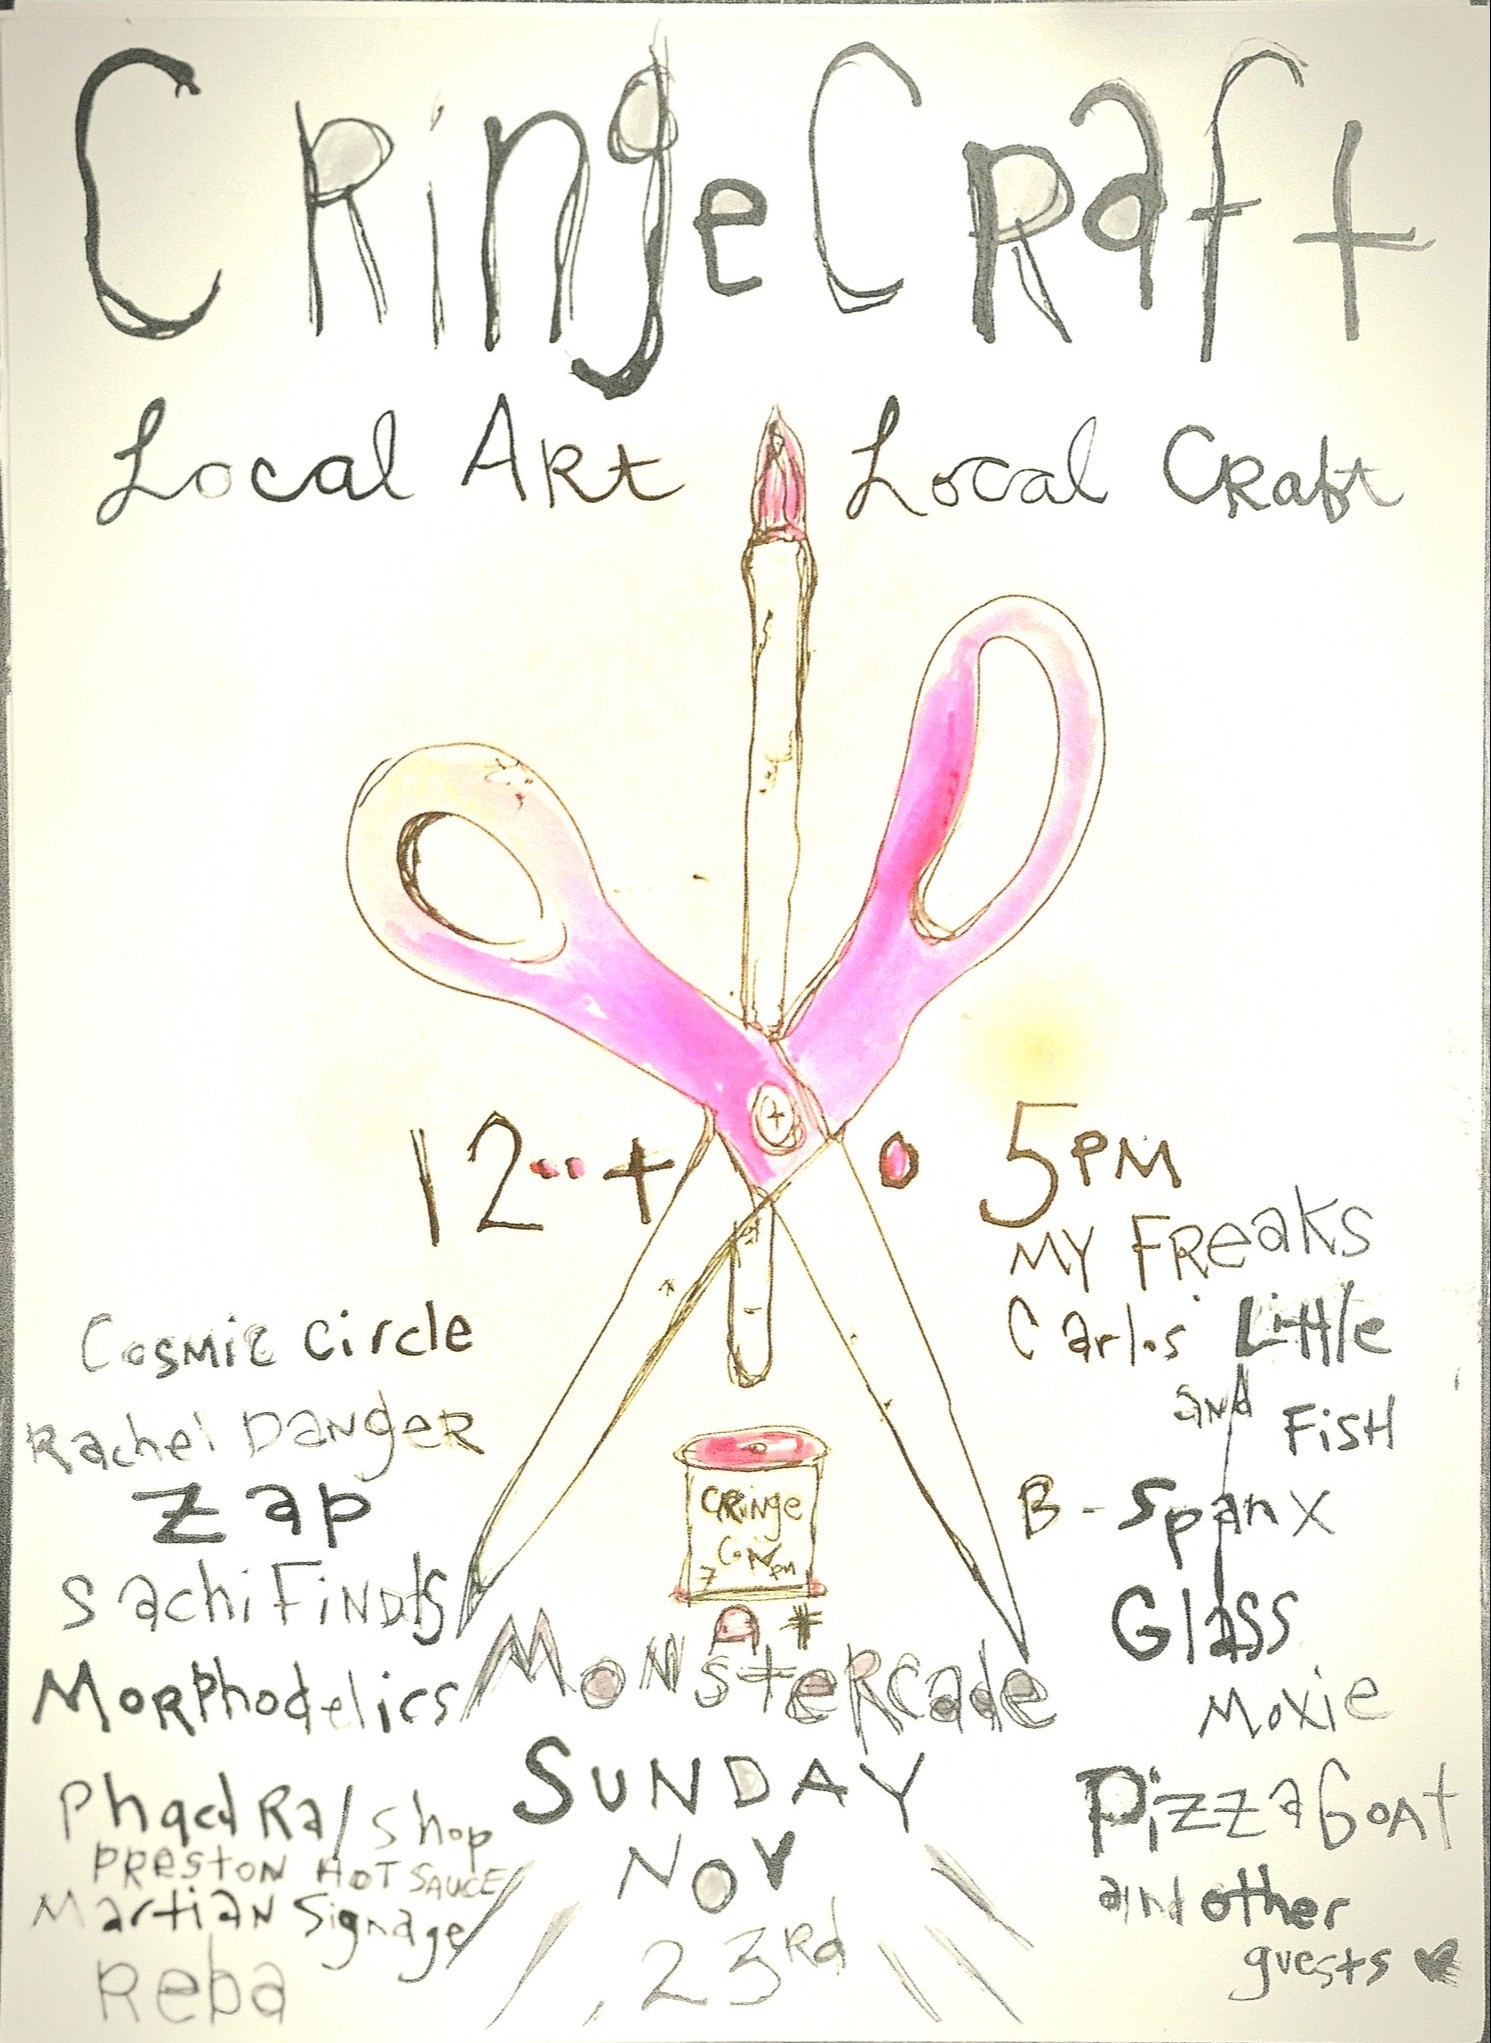 CringeCraft
Local Art Local Craft
12 + 5PM
Cosmic Circle
Rachel Danger
Zap
Sachi Finds
Morphodelics
Shop
PRESTON HOT SAUCE
Martian Signage
Reba
CRinge
CON
7 PM
Monstercade
SUNDAY
NOV
23rd
MY FReaks
Carlos' Little
and FisH
B-Spanx
Glass
Moxie
PizzaGoat
and other
guests